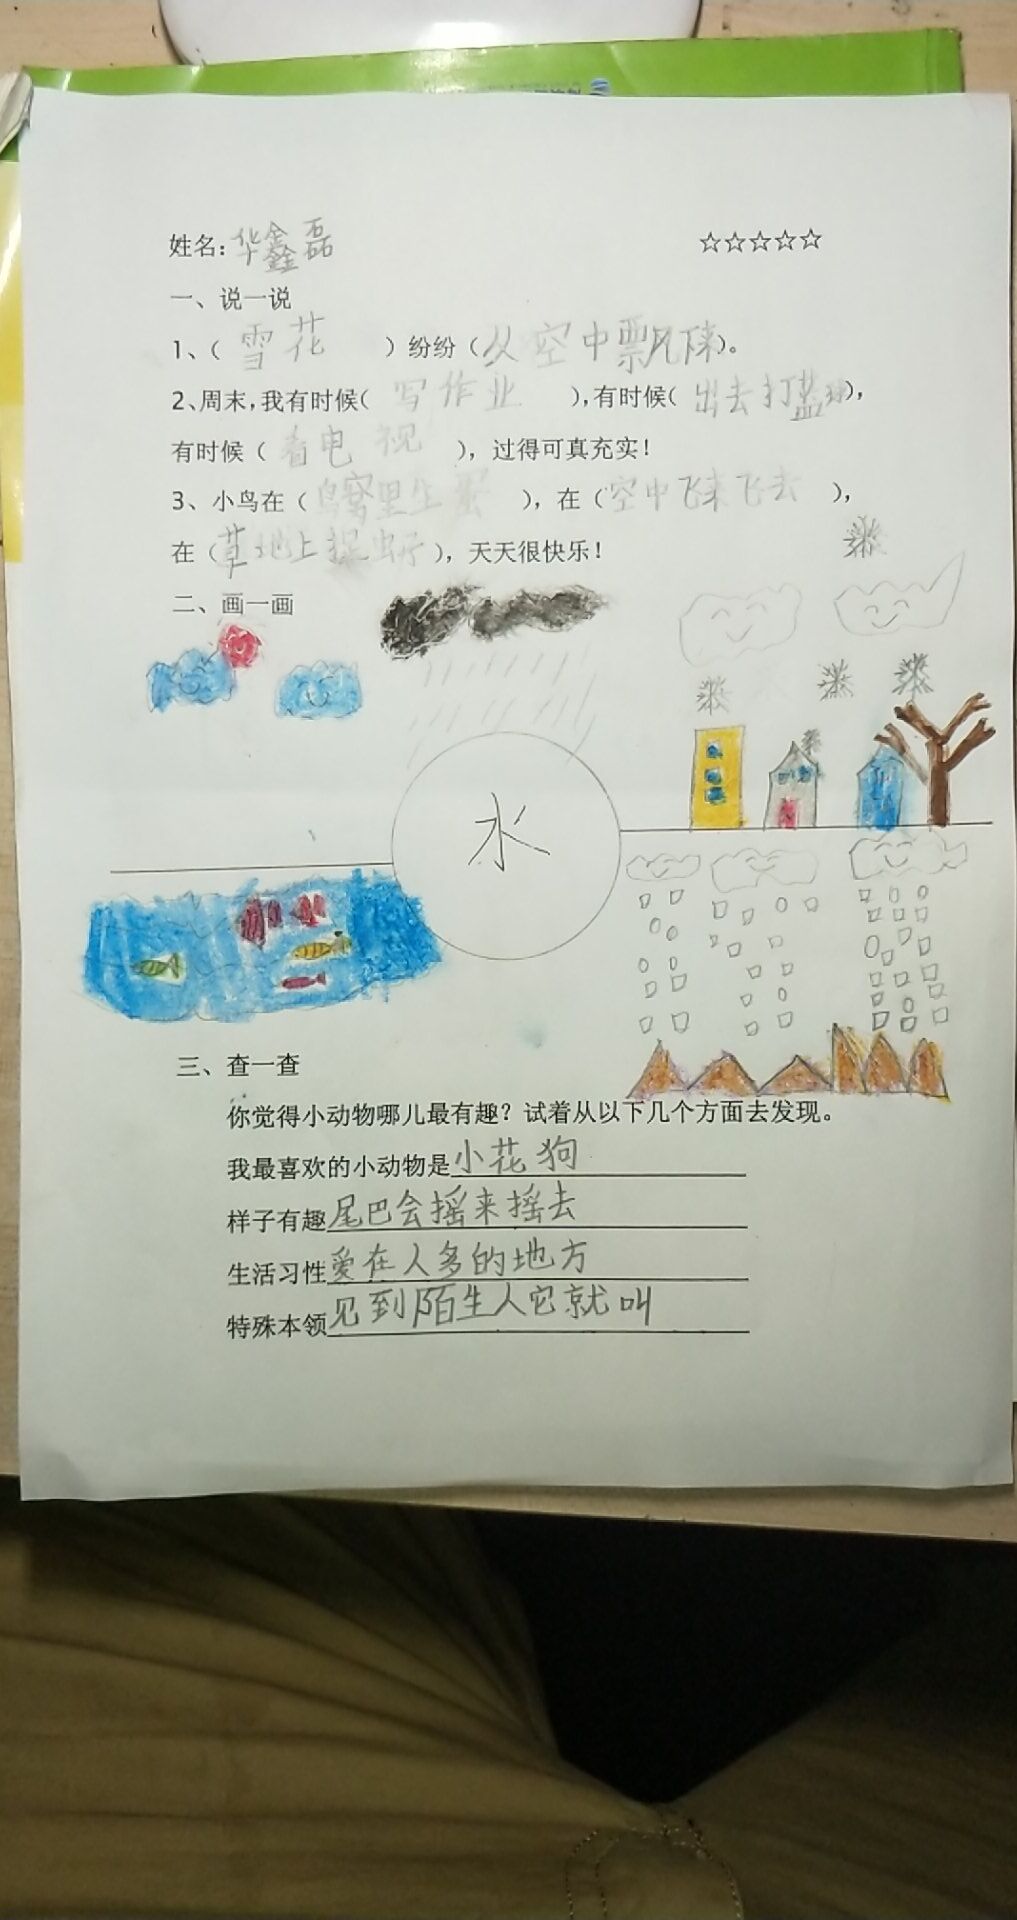 姓名：华鑫磊 ☆☆☆☆☆
一、说一说
1、（雪花）纷纷（从空中飘下来）。
2、周末，我有时候（写作业），有时候（出去打蓝球），
有时候（看电视），过得可真充实！
3、小鸟在（鸟窝里生蛋），在（空中飞来飞去），
在（草地上捉虫子），天天很快乐！
二、画一画
水
三、查一查
你觉得小动物哪儿最有趣？试着从以下几个方面去发现。
我最喜欢的小动物是小花狗
样子有趣尾巴会摇来摇去
生活习性爱在人多的地方
特殊本领见到陌生人它就叫